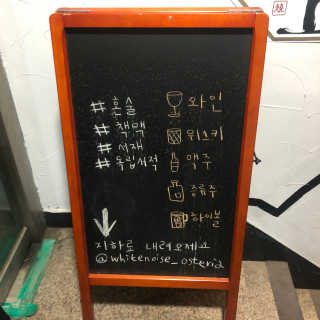 #혼술
#책맥
#서재
#독립서적
와인
위스키
맥주
증류주
하이볼
지하로 내려오세요
@whitenoise_osteria